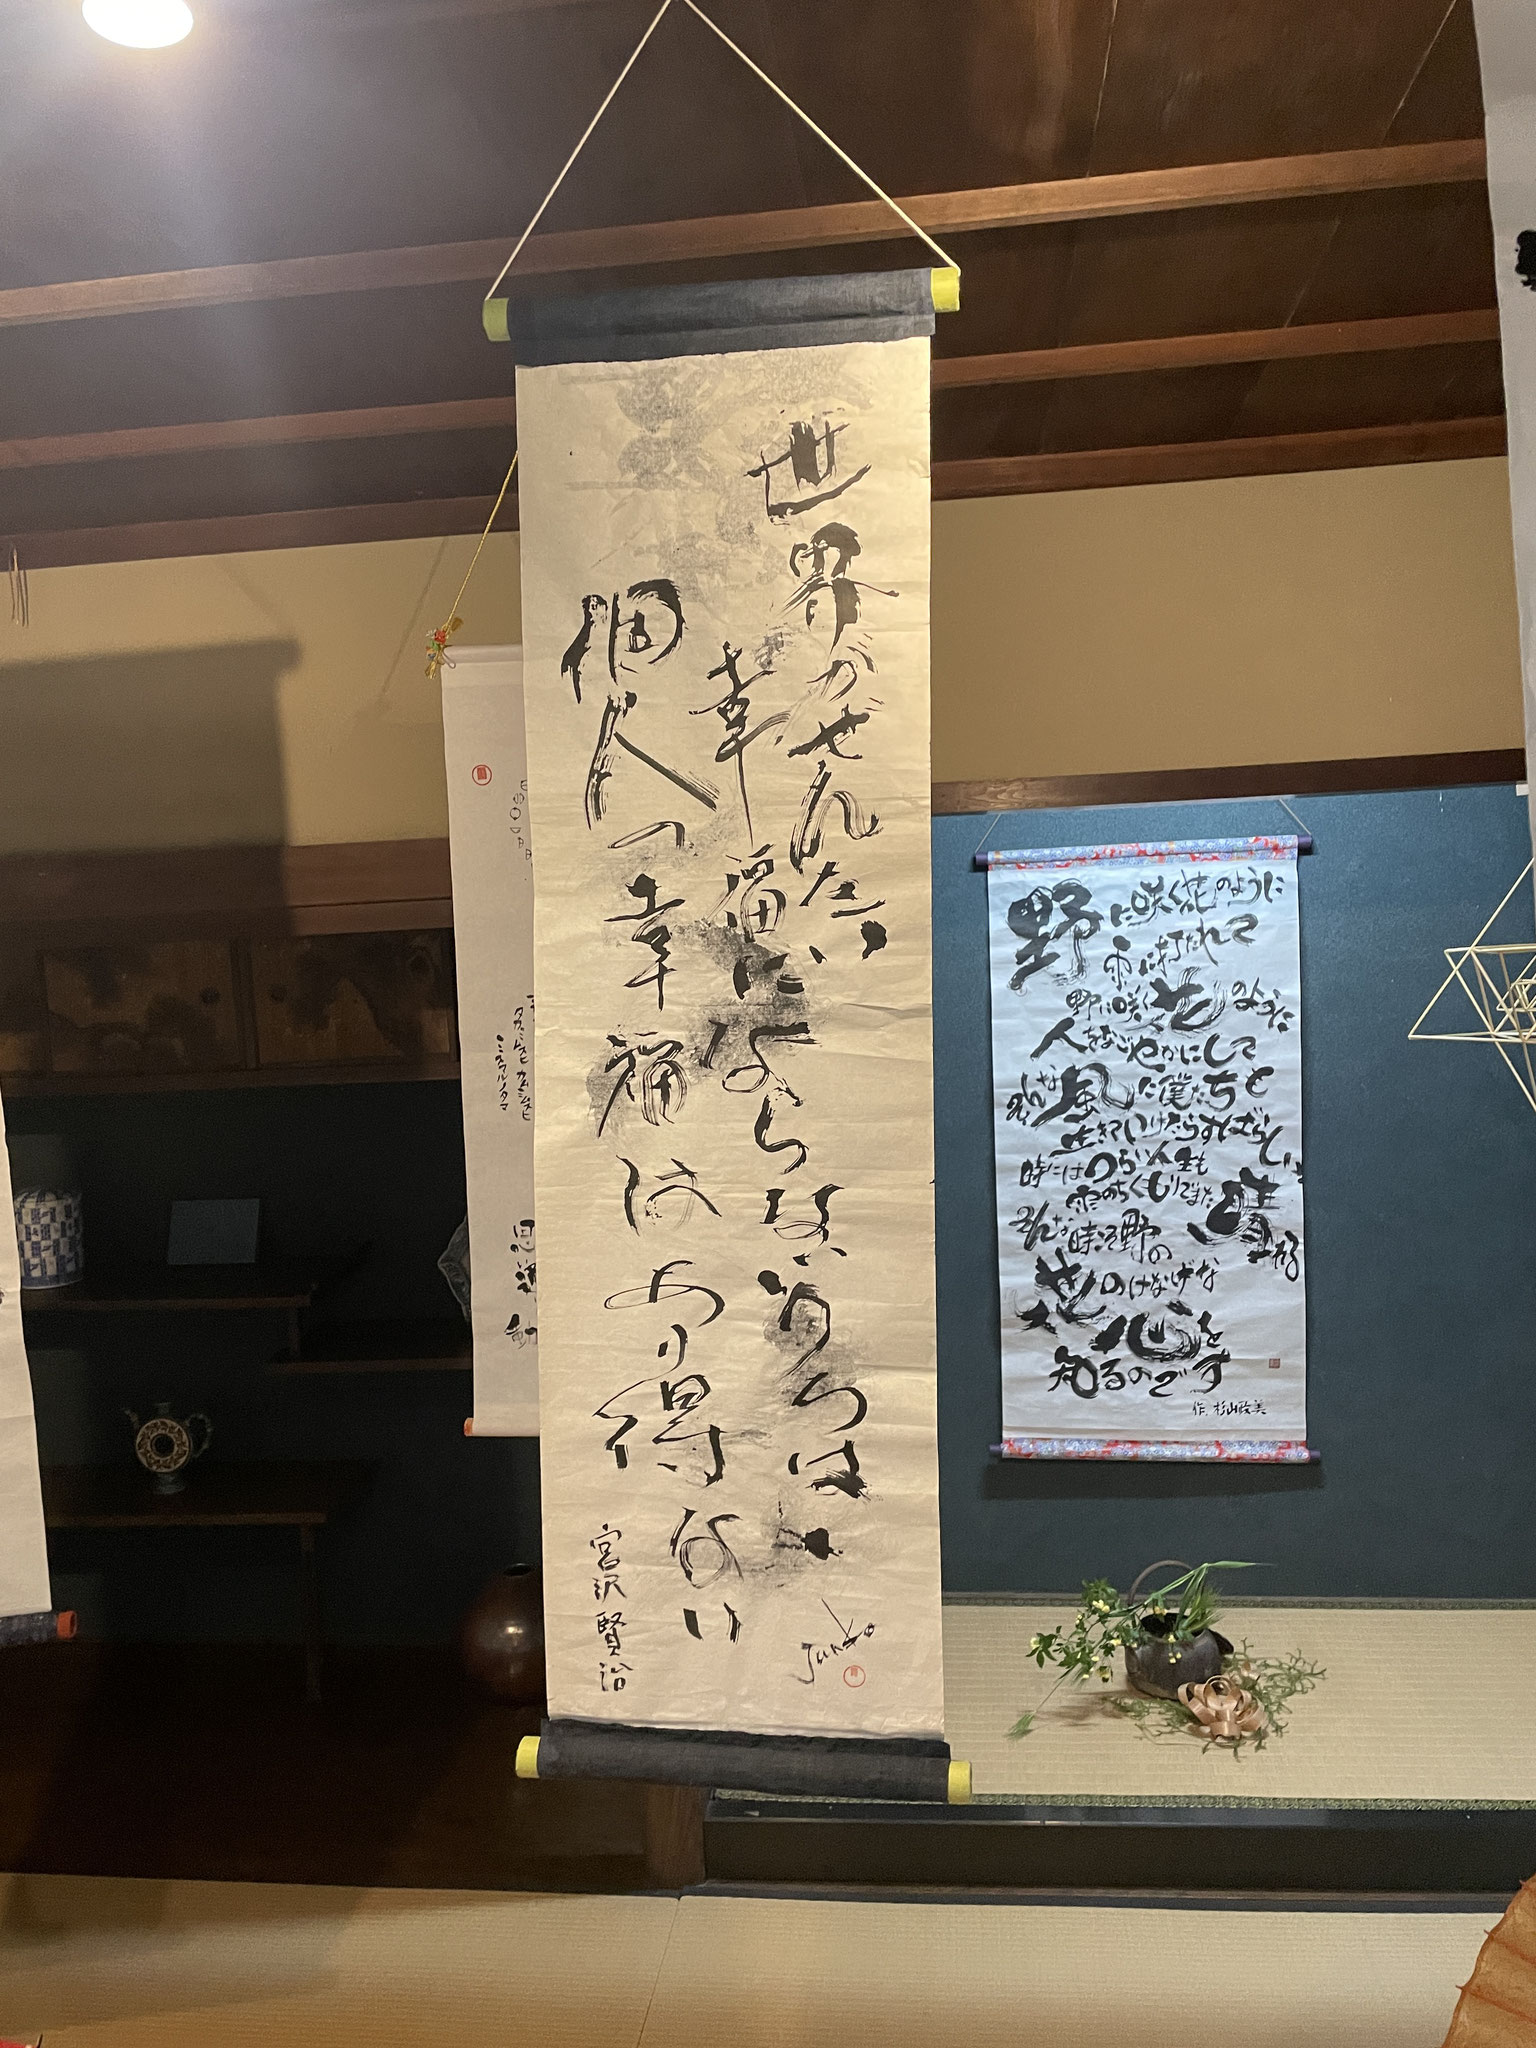 世界がぜんたい
幸福にならないうちは、
個人の幸福はあり得ない
宮沢賢治
Junko
野に咲く花のように
雨に打たれて
野に咲く花のように
人をなごやかにして
そんな風に僕たちも
生きていけたらすばらしい
時にはつらい人生も
雨のちくもりでまた晴れる
そんな時こそ野の
花のけなげな
心を
知るのです
作、杉山政美